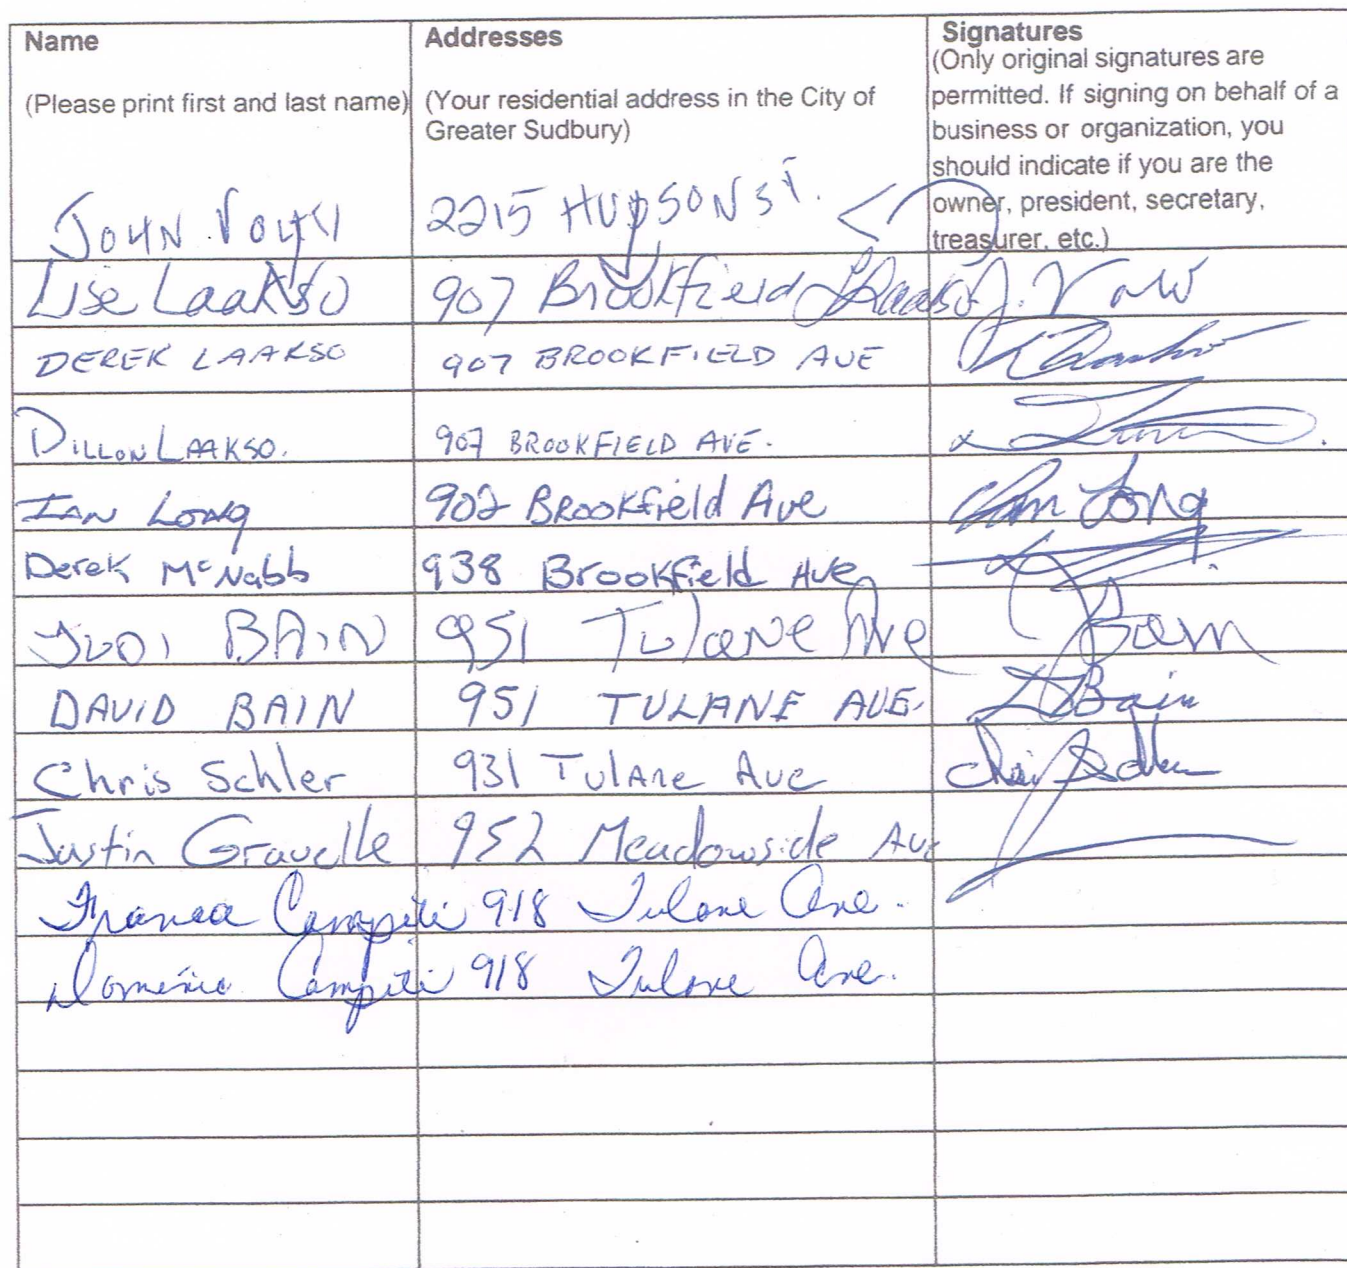 Name
(Please print first and last name)
Addresses
(Your residential address in the City of
Greater Sudbury)
Signatures
(Only original signatures are
permitted. If signing on behalf of a
business or organization, you
should indicate if you are the
owner, president, secretary,
treasurer, etc.)
JOHN 2215 HUDSON ST.
Lise Laakso 907 Brookfield LLaakso J.
DEREK LAAKSO 907 BROOKFIELD AVE
DILLON LAAKSO. 907 BROOKFIELD AVE.
IAN LONG 902 Brookfield Ave Ian Long
Derek McNabb 938 Brookfield Ave
JUDI BAIN 951 Tulane Ave JBain
DAVID BAIN 951 TULANE AVE. DBain
Chris Schler 931 Tulane Ave
Justin Gravelle 952 Meadowside Ave
Franca Campiti 918 Tulane Ave.
Domenic Campiti 918 Tulane Ave.